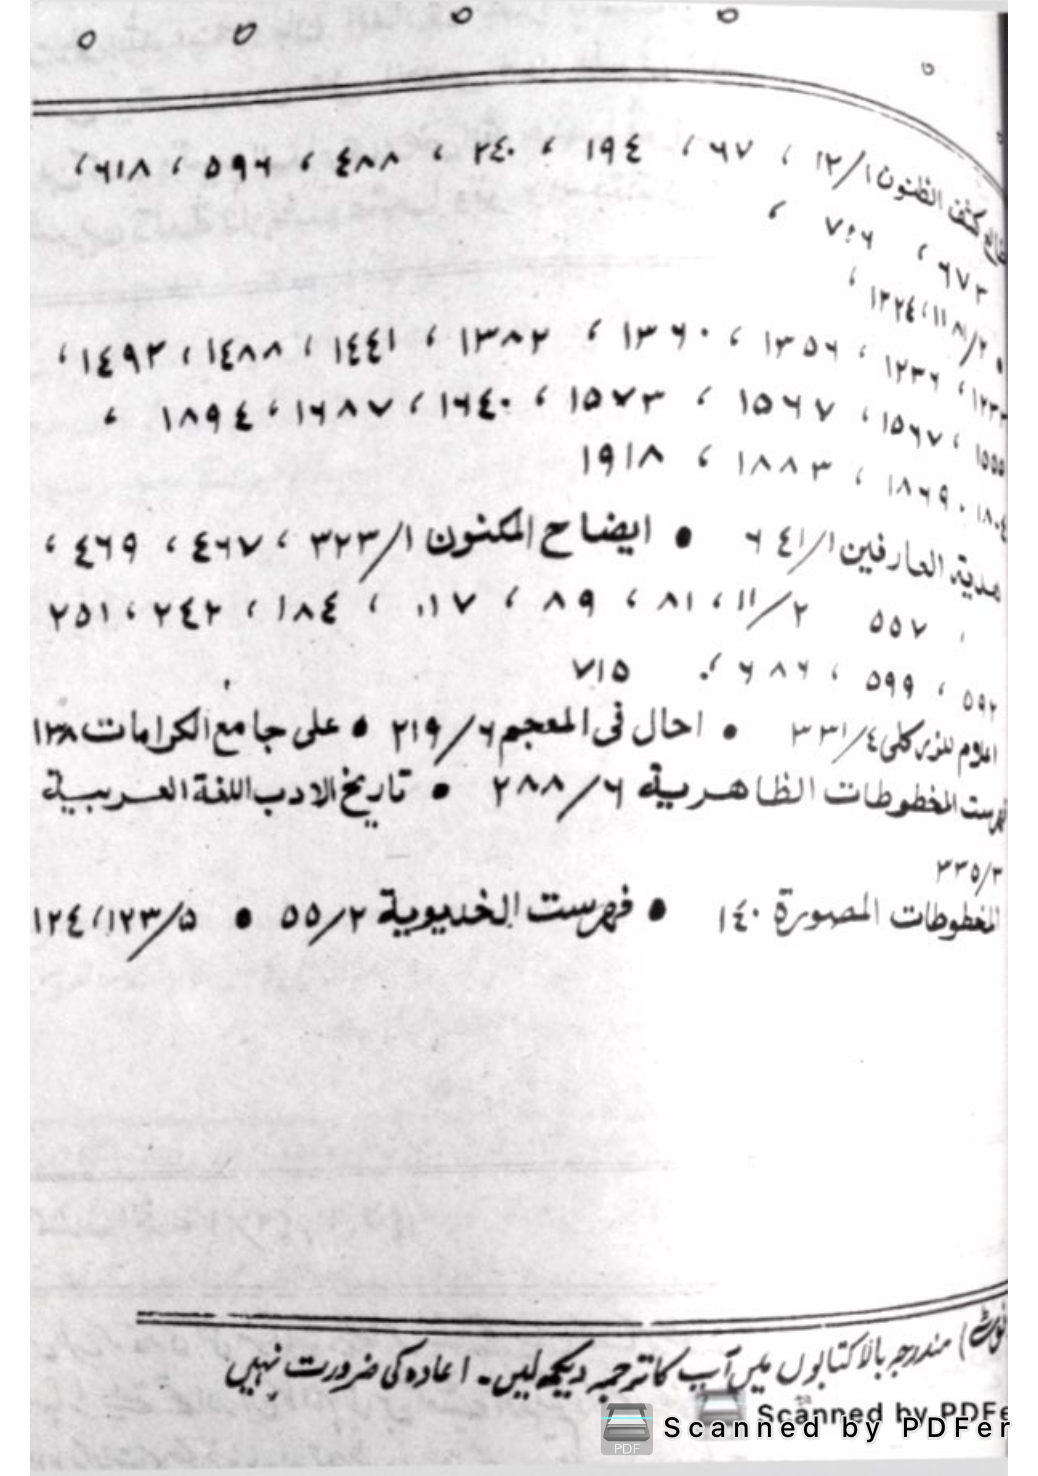 كشف الظنون ١/١٢ ، ٦٧ ، ١٩٤ ، ٢٤٠ ، ٤٨٨ ، ٥٩٦ ، ٦١٨،
٦٧٣ ، ٧٤٦ ،
● ١١٨/٢، ١٢٢٤ ،
١٢٣٣، ١٢٣٦ ، ١٣٥٦ ، ١٣٦٠ ، ١٣٨٢ ، ١٤٤١ ، ١٤٨٨ ، ١٤٩٢ ،
١٥٥٥ ، ١٥٦٧ ، ١٥٦٧ ، ١٥٧٣ ، ١٦٤٠ ، ١٦٨٧ ، ١٨٩٤ ،
١٨٠٤ . ١٨٦٩ ، ١٨٨٣ ، ١٩١٨
هدية العارفين ١/٦٤١ ● ايضاح المكنون ١/٣٢٣ ، ٤٦٧ ، ٤٦٩ ،
، ٥٥٧ ٢/١١ ، ٨١ ، ٨٩ ، ١١٧ ، ١٨٤ ، ٢٤٢ ، ٢٥١
٥٩٢ ، ٥٩٩ ، ٦٨٦ ، ٧١٥
اعلام للزركلى ٤/٣٣١ ● احال فى المعجم ٦/٢١٩ ● على جامع الكرامات ١٣٨
فهرست المخطوطات الظاهرية ٦/٢٨٨ ● تاريخ الادب اللغة العربية
٣/٣٣٥
المخطوطات المصورة ١٤٠ ● فهرست الخديوية ٢/٥٥ ● ٥/١٢٣، ١٢٤
نوٹ) مندرجہ بالا کتابوں میں آپ کا ترجمہ دیکھ لیں۔ اعادہ کی ضرورت نہیں
Scanned by PDFer
Scanned by PDFe
PDF